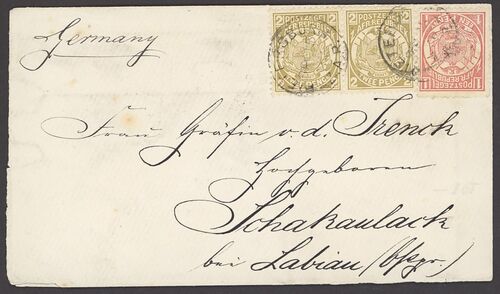 Germany
2 POSTZEGEL 2
Z. AFR. REPUBLIEK
TWEE PENCE
2 POSTZEGEL 2
TWEE PENCE
1 POSTZEGEL 1
Frau Gräfin v. d. Trenck
Hochgeboren
Schakaulack
bei Labiau (Ostpr.)